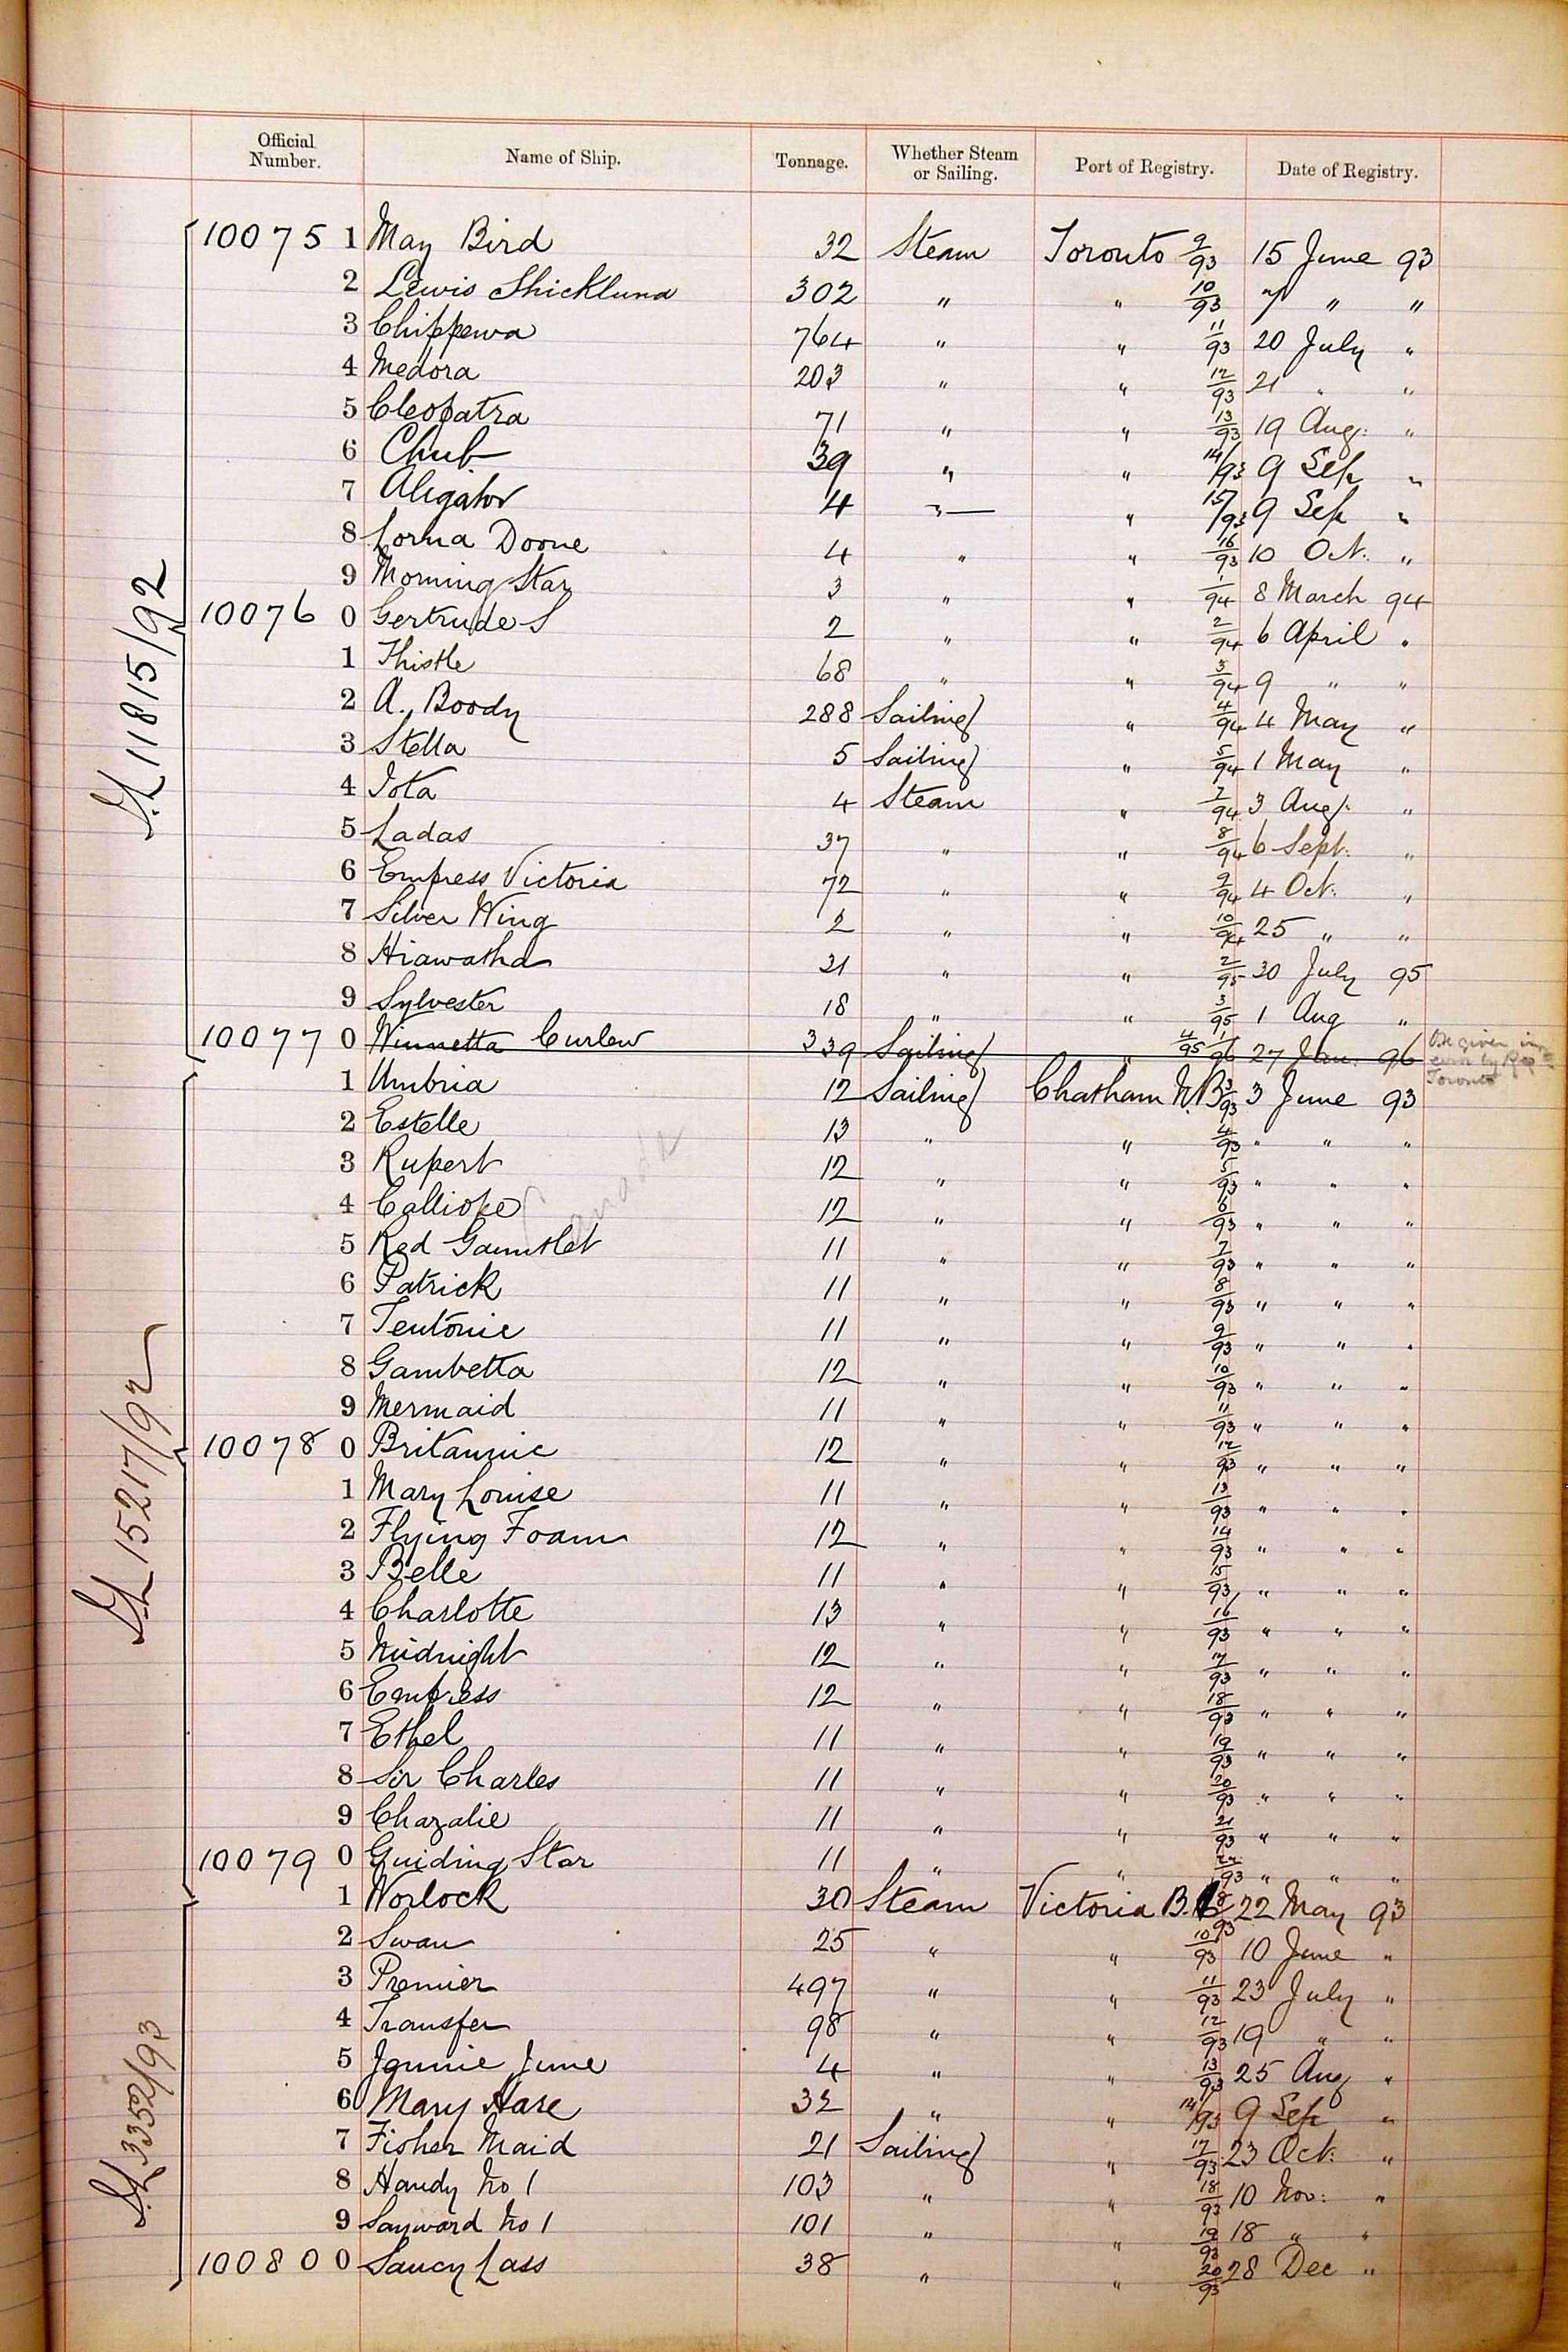 Official Number. Name of Ship. Tonnage. Whether Steam or Sailing. Port of Registry. Date of Registry.
10075 1 May Bird 32 Steam Toronto 9/93 15 June 93
2 Lewis Shicklund 302 " " 10/93 " " "
3 Chippewa 764 " " 11/93 20 July "
4 Medora 203 " " 12/93 21 " "
5 Cleopatra 71 " " 13/93 19 Aug: "
6 Chub 39 " " 14/93 9 Sep "
7 Aligator 4 " " 15/93 9 Sep "
8 Lorna Doone 4 " " 16/93 10 Oct. "
9 Morning Star 3 " " 1/94 8 March 94
10076 0 Gertrude S 2 " " 2/94 6 April "
1 Thistle 68 " " 3/94 9 " "
2 A. Boody 288 Sailing " 4/94 4 May "
3 Stella 5 Sailing " 5/94 1 May "
4 Iota 4 Steam " 7/94 3 Aug: "
5 Ladas 37 " " 8/94 6 Sept: "
6 Empress Victoria 72 " " 9/94 4 Oct: "
7 Silver Wing 2 " " 10/94 25 " "
8 Hiawatha 21 " " 2/95 30 July 95
9 Sylvester 18 " " 3/95 1 Aug "
10077 0 Winnetta Curlew 339 Sailing " 4/95 1/96 27 Jan: 96 given in error by Reg Toronto
1 Umbria 12 Sailing Chatham N.B. 3/93 3 June 93
2 Estelle 13 " " 4/93 " " "
3 Rupert 12 " " 5/93 " " "
4 Calliope 12 " " 6/93 " " "
5 Red Gauntlet 11 " " 7/93 " " "
6 Patrick 11 " " 8/93 " " "
7 Teutonic 11 " " 9/93 " " "
8 Gambetta 12 " " 10/93 " " "
9 Mermaid 11 " " 11/93 " " "
10078 0 Britannic 12 " " 12/93 " " "
1 Mary Louise 11 " " 13/93 " " "
2 Flying Foam 12 " " 14/93 " " "
3 Belle 11 " " 15/93 " " "
4 Charlotte 13 " " 16/93 " " "
5 Midnight 12 " " 17/93 " " "
6 Empress 12 " " 18/93 " " "
7 Ethel 11 " " 19/93 " " "
8 Sir Charles 11 " " 20/93 " " "
9 Chazalie 11 " " 21/93 " " "
10079 0 Guiding Star 11 " " 22/93 " " "
1 Worlock 30 Steam Victoria B.C 8/93 22 May 93
2 Swan 25 " " 10/93 10 June "
3 Premier 497 " " 11/93 23 July "
4 Transfer 98 " " 12/93 19 " "
5 Jennie June 4 " " 13/93 25 Aug "
6 Mary Hare 32 " " 14/93 9 Sep "
7 Fisher Maid 21 Sailing " 17/93 23 Oct: "
8 Handy No 1 103 " " 18/93 10 Nov: "
9 Sayward No 1 101 " " 19/93 18 " "
10080 0 Saucy Lass 38 " " 20/93 28 Dec "
11815/92
15217/92
3352/93